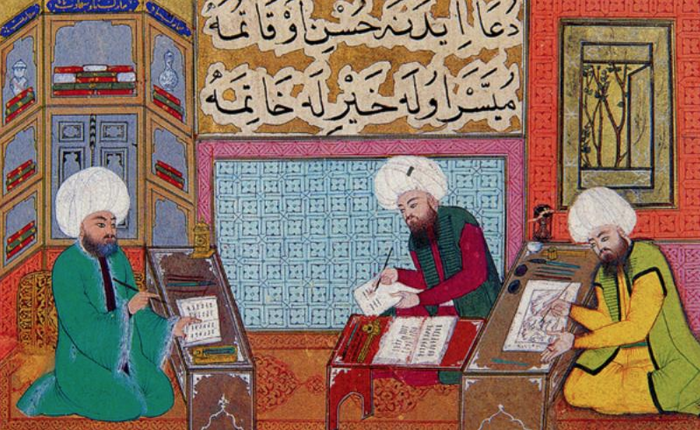 دُعَا اِيدَنَه حُسْنِ اَوْقَاتِمَه
مُيَسَّرْ اوُلَه خَيْرِ لَه خَاتِمَه